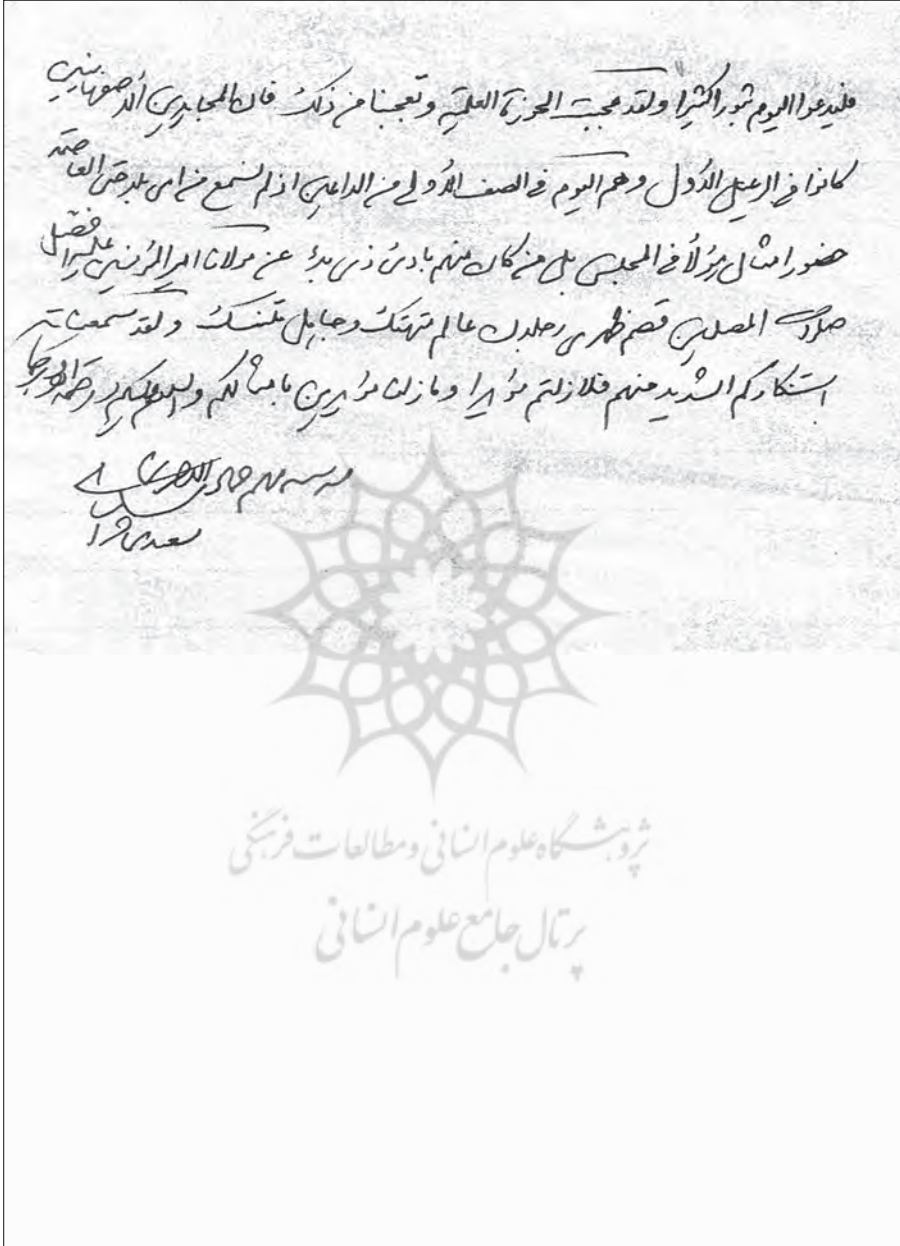 فلیدعوا الیوم ثبورا کثیرا ولقد عجبت الحوزة العلمیة و تعجبنا من ذلک فان المجاهدین الاصفهانیین
کانوا فی الرعیل الاول و هم الیوم فی الصف الاولی من الداعین اذ لم نسمع من ای بلد حتی العاصمة
حضور امثال هؤلاء فی المجلس بلی من کان منهم بادئ ذی بدء عن مولانا امیر المؤمنین علیه افضل
صلوات المصلین قصم ظهری رجلان عالم متهتک و جاهل متنسک و لقد سمعنا
استنکارکم الشدید منهم فلازلتم مؤیدا و مازلنا مؤیدین بامثالکم والسلام علیکم و رحمة الله و برکاته
پژوهشگاه علوم انسانی و مطالعات فرهنگی
پرتال جامع علوم انسانی